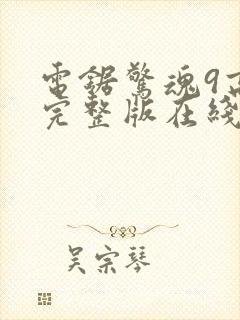 電鋸驚魂9高
完整版在綫
吴宗琴